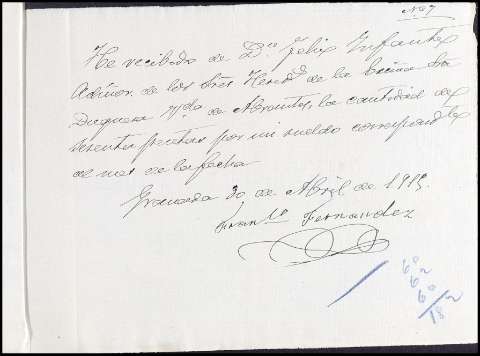 Nº 7
He recibido de Dn Felix Infantes
Admor. de los Sres Hered. de la Exima Sra
Duquesa Vda de Abrantes, la cantidad de
sesenta pesetas por mi sueldo correspond
al mes de la fecha
Granada 30 de Abril de 1913.
Franco Fernandez
60
62
60
182